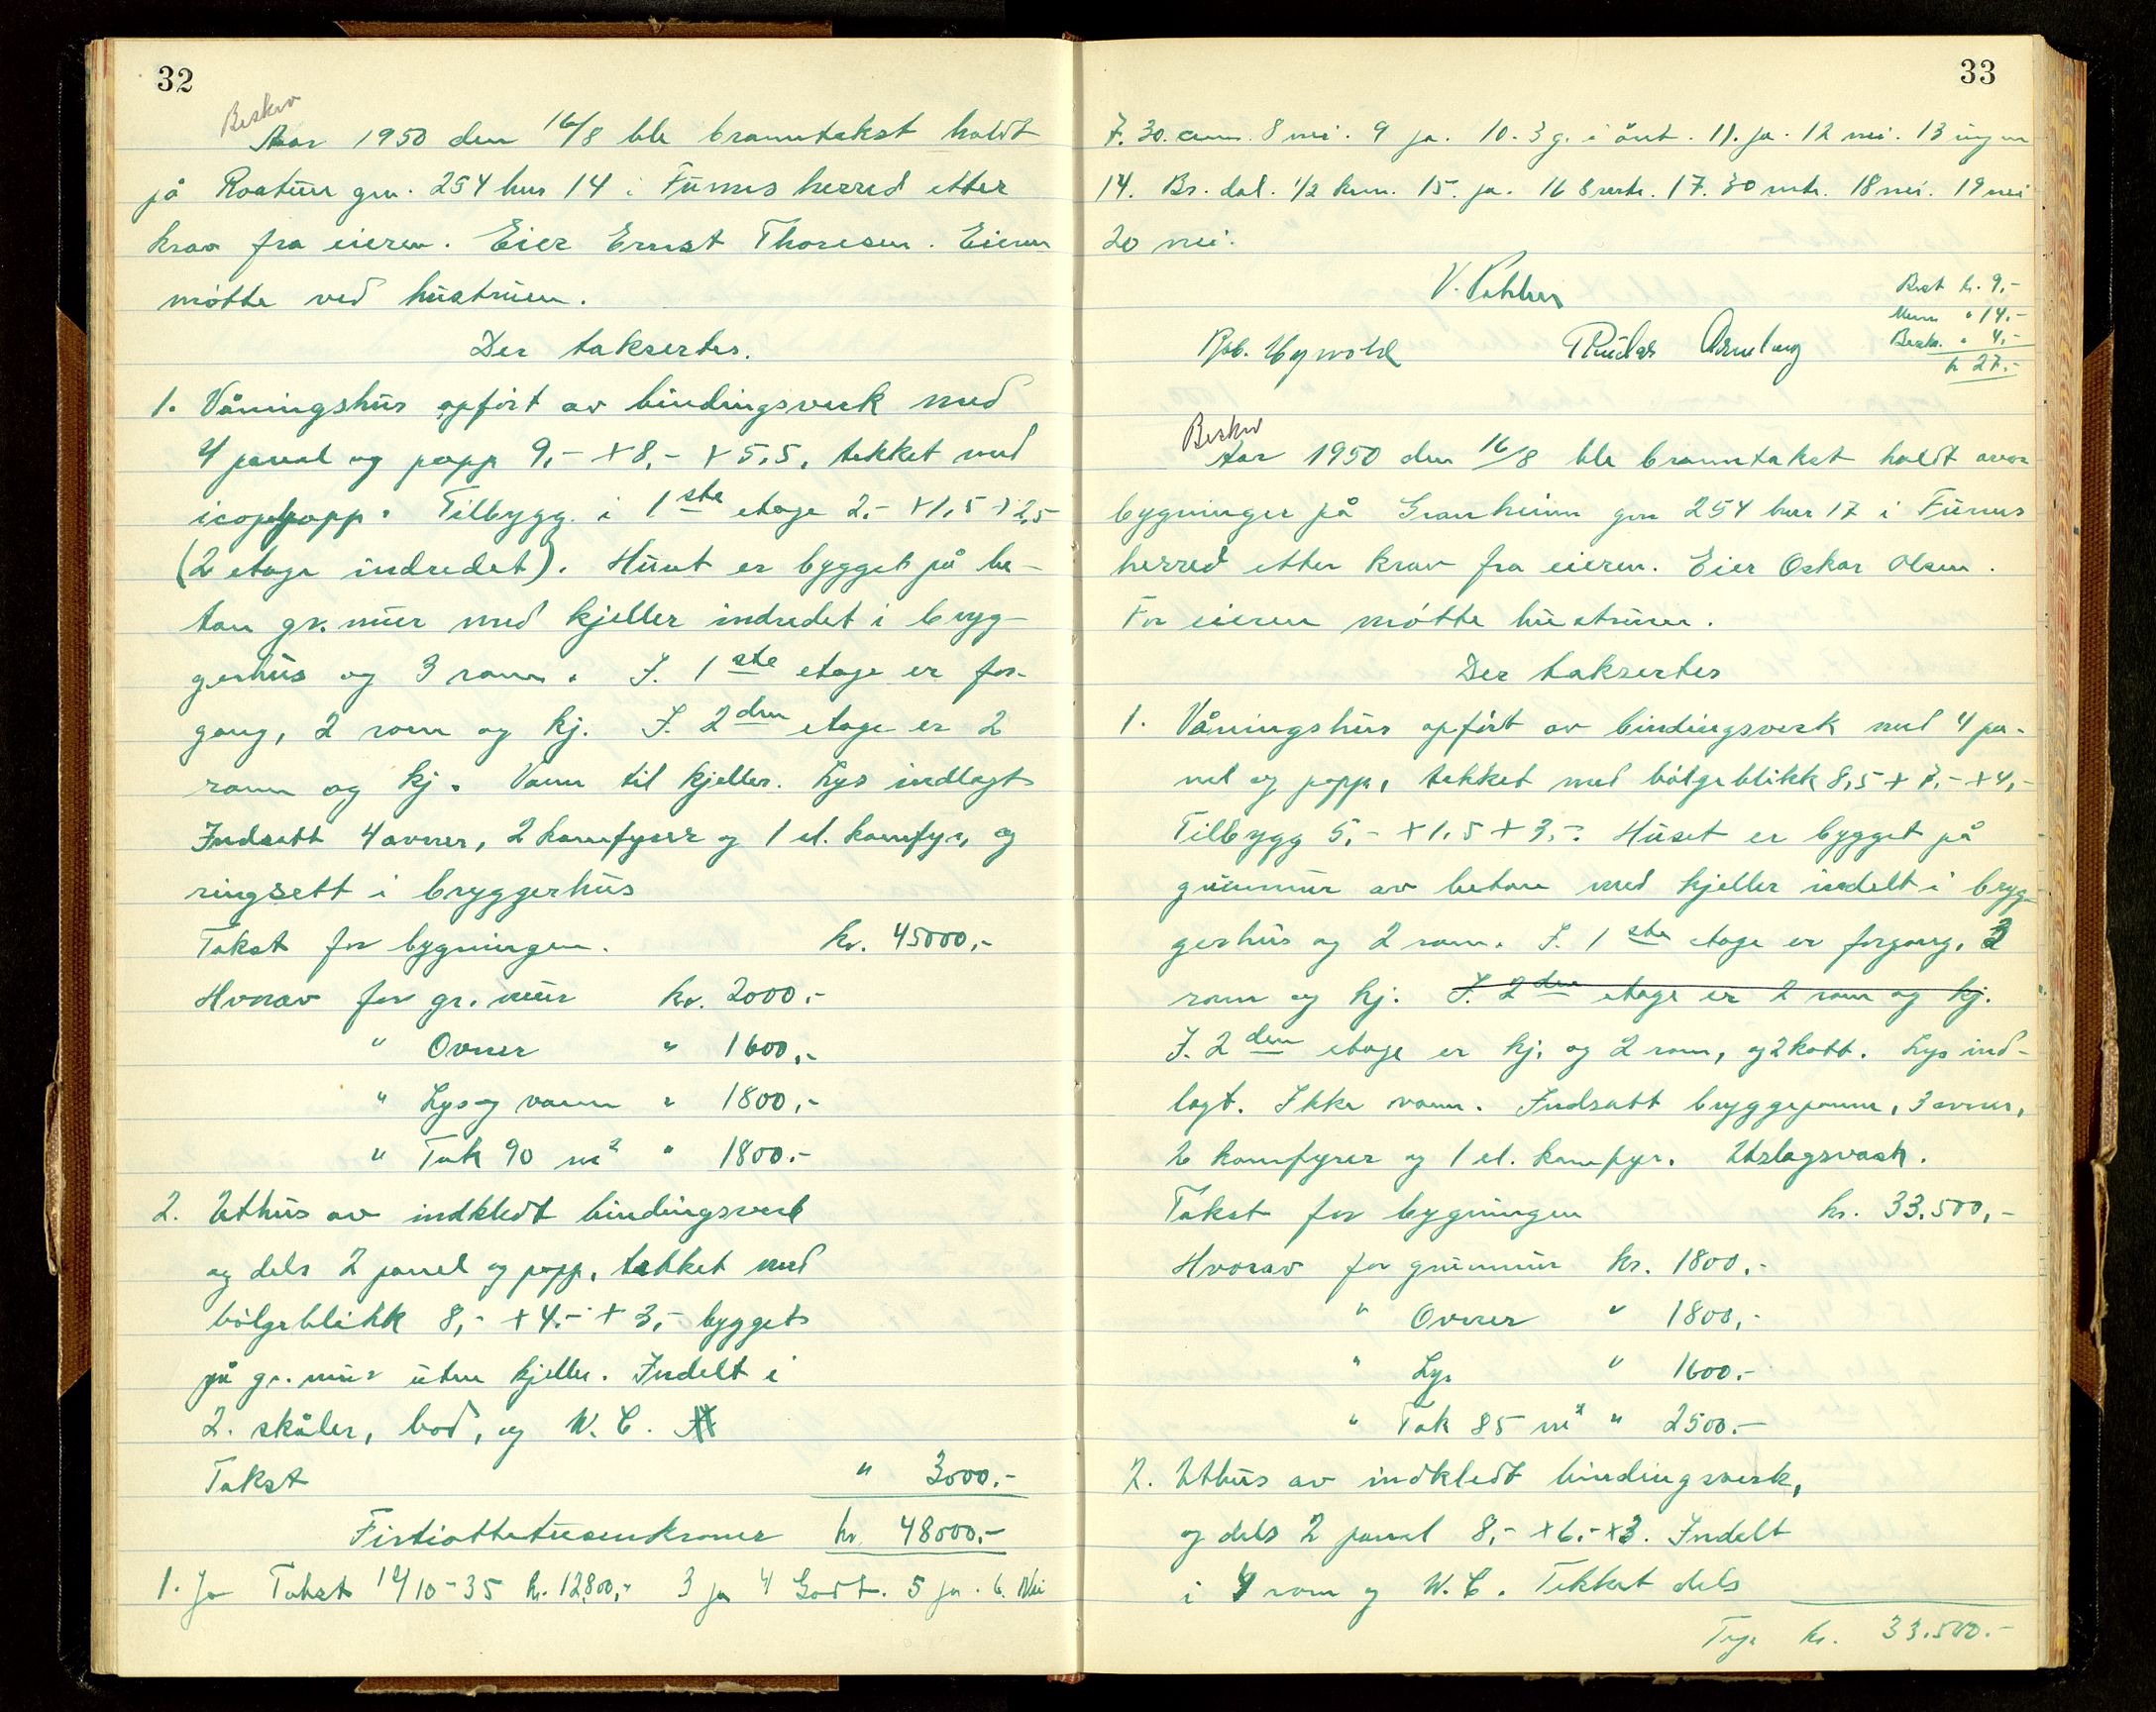 32
Beskr
Aar 1950 den 16/8 ble branntakst holdt
på Roatun gnr. 254 bnr 14 i Furnes herred etter
krav fra eieren. Eier Ernst Thoresen. Eieren
møtte ved hustruen.
Der taksertes.
1. Våningshus opført av bindingsverk med
4 panel og papp 9,- + 8,- + 5,5, tekket med
icopalpapp. Tilbygg i 1ste etage 2,- + 1,5 + 2,5
(2 etage indredet). Huset er bygget på be-
ton gr. mur med kjeller indredet i bryg-
gerhus og 3 rom. I. 1ste etage er for-
gang, 2 rom og kj. I. 2den etage er 2
rom og kj. Vann til kjeller. Lys indlagt
Indsatt 4 ovner, 2 komfyrer og 1 el. komfyr, og
ringsett i bryggerhus
Takst for bygningen. kr. 45000,-
Hvorav for gr. mur kr. 2000.-
" Ovner " 1600,-
" Lys og vann " 1800,-
" Tak 90 m2 " 1800.-
2. Uthus av indkledt bindingsverk
og dels 2 panel og papp, tekket med
bølgeblikk 8,- + 4.- + 3,- bygget
på gr. mur uten kjeller. Indelt i
2. skåler, bod, og W. C.
Takst " 3000.-
Førtiottetusenkroner kr. 48000,-
1. Ja Takst 14/10-35 kr. 12800,- 3 ja 4 Godt. 5 ja. 6. Nei
33
7. 30. cm. 8 nei. 9 ja. 10. 3 g. i året. 11. ja. 12 nei. 13 ingen
14. Br. dal. 1/2 km. 15. ja. 16 8 mtr. 17. 30 mtr. 18 nei. 19 nei
20 nei.
Rest kr. 9,-
" 14.-
Beskr. " 4,-
kr 27.-
Beskr
Aar 1950 den 16/8 ble branntakst holdt over
bygninger på Granheim gnr 254 bnr 17 i Furnes
herred etter krav fra eieren. Eier Oskar Olsen.
For eieren møtte hustruen.
Der taksertes
1. Våningshus opført av bindingsverk med 4 pa-
nel og papp, tekket med bølgeblikk 8,5 + 7,- + 4,-
Tilbygg 5,- + 1,5 + 3,-. Huset er bygget på
grunnmur av beton med kjeller indelt i bryg-
gerhus og 2 rom. I. 1ste etage er forgang, 2
rom og kj. I. 2den etage er 2 rom og kj.
I. 2den etage er kj. og 2 rom, og 2 kott. Lys ind-
lagt. Ikke vann. Indsatt bryggepanne, 3 ovner,
2 komfyrer og 1 el. komfyr. Utslagsvask.
Takst for bygningen kr. 33.500,-
Hvorav for grunnmur kr. 1800.-
" Ovner " 1800,-
" Lys " 1600.-
" Tak 85 m2 " 2500.-
2. Uthus av indkledt bindingsverk,
og dels 2 panel 8,- + 6.- + 3. Indelt
i 4 rom og W. C. Tekket dels
kr. 33.500.-